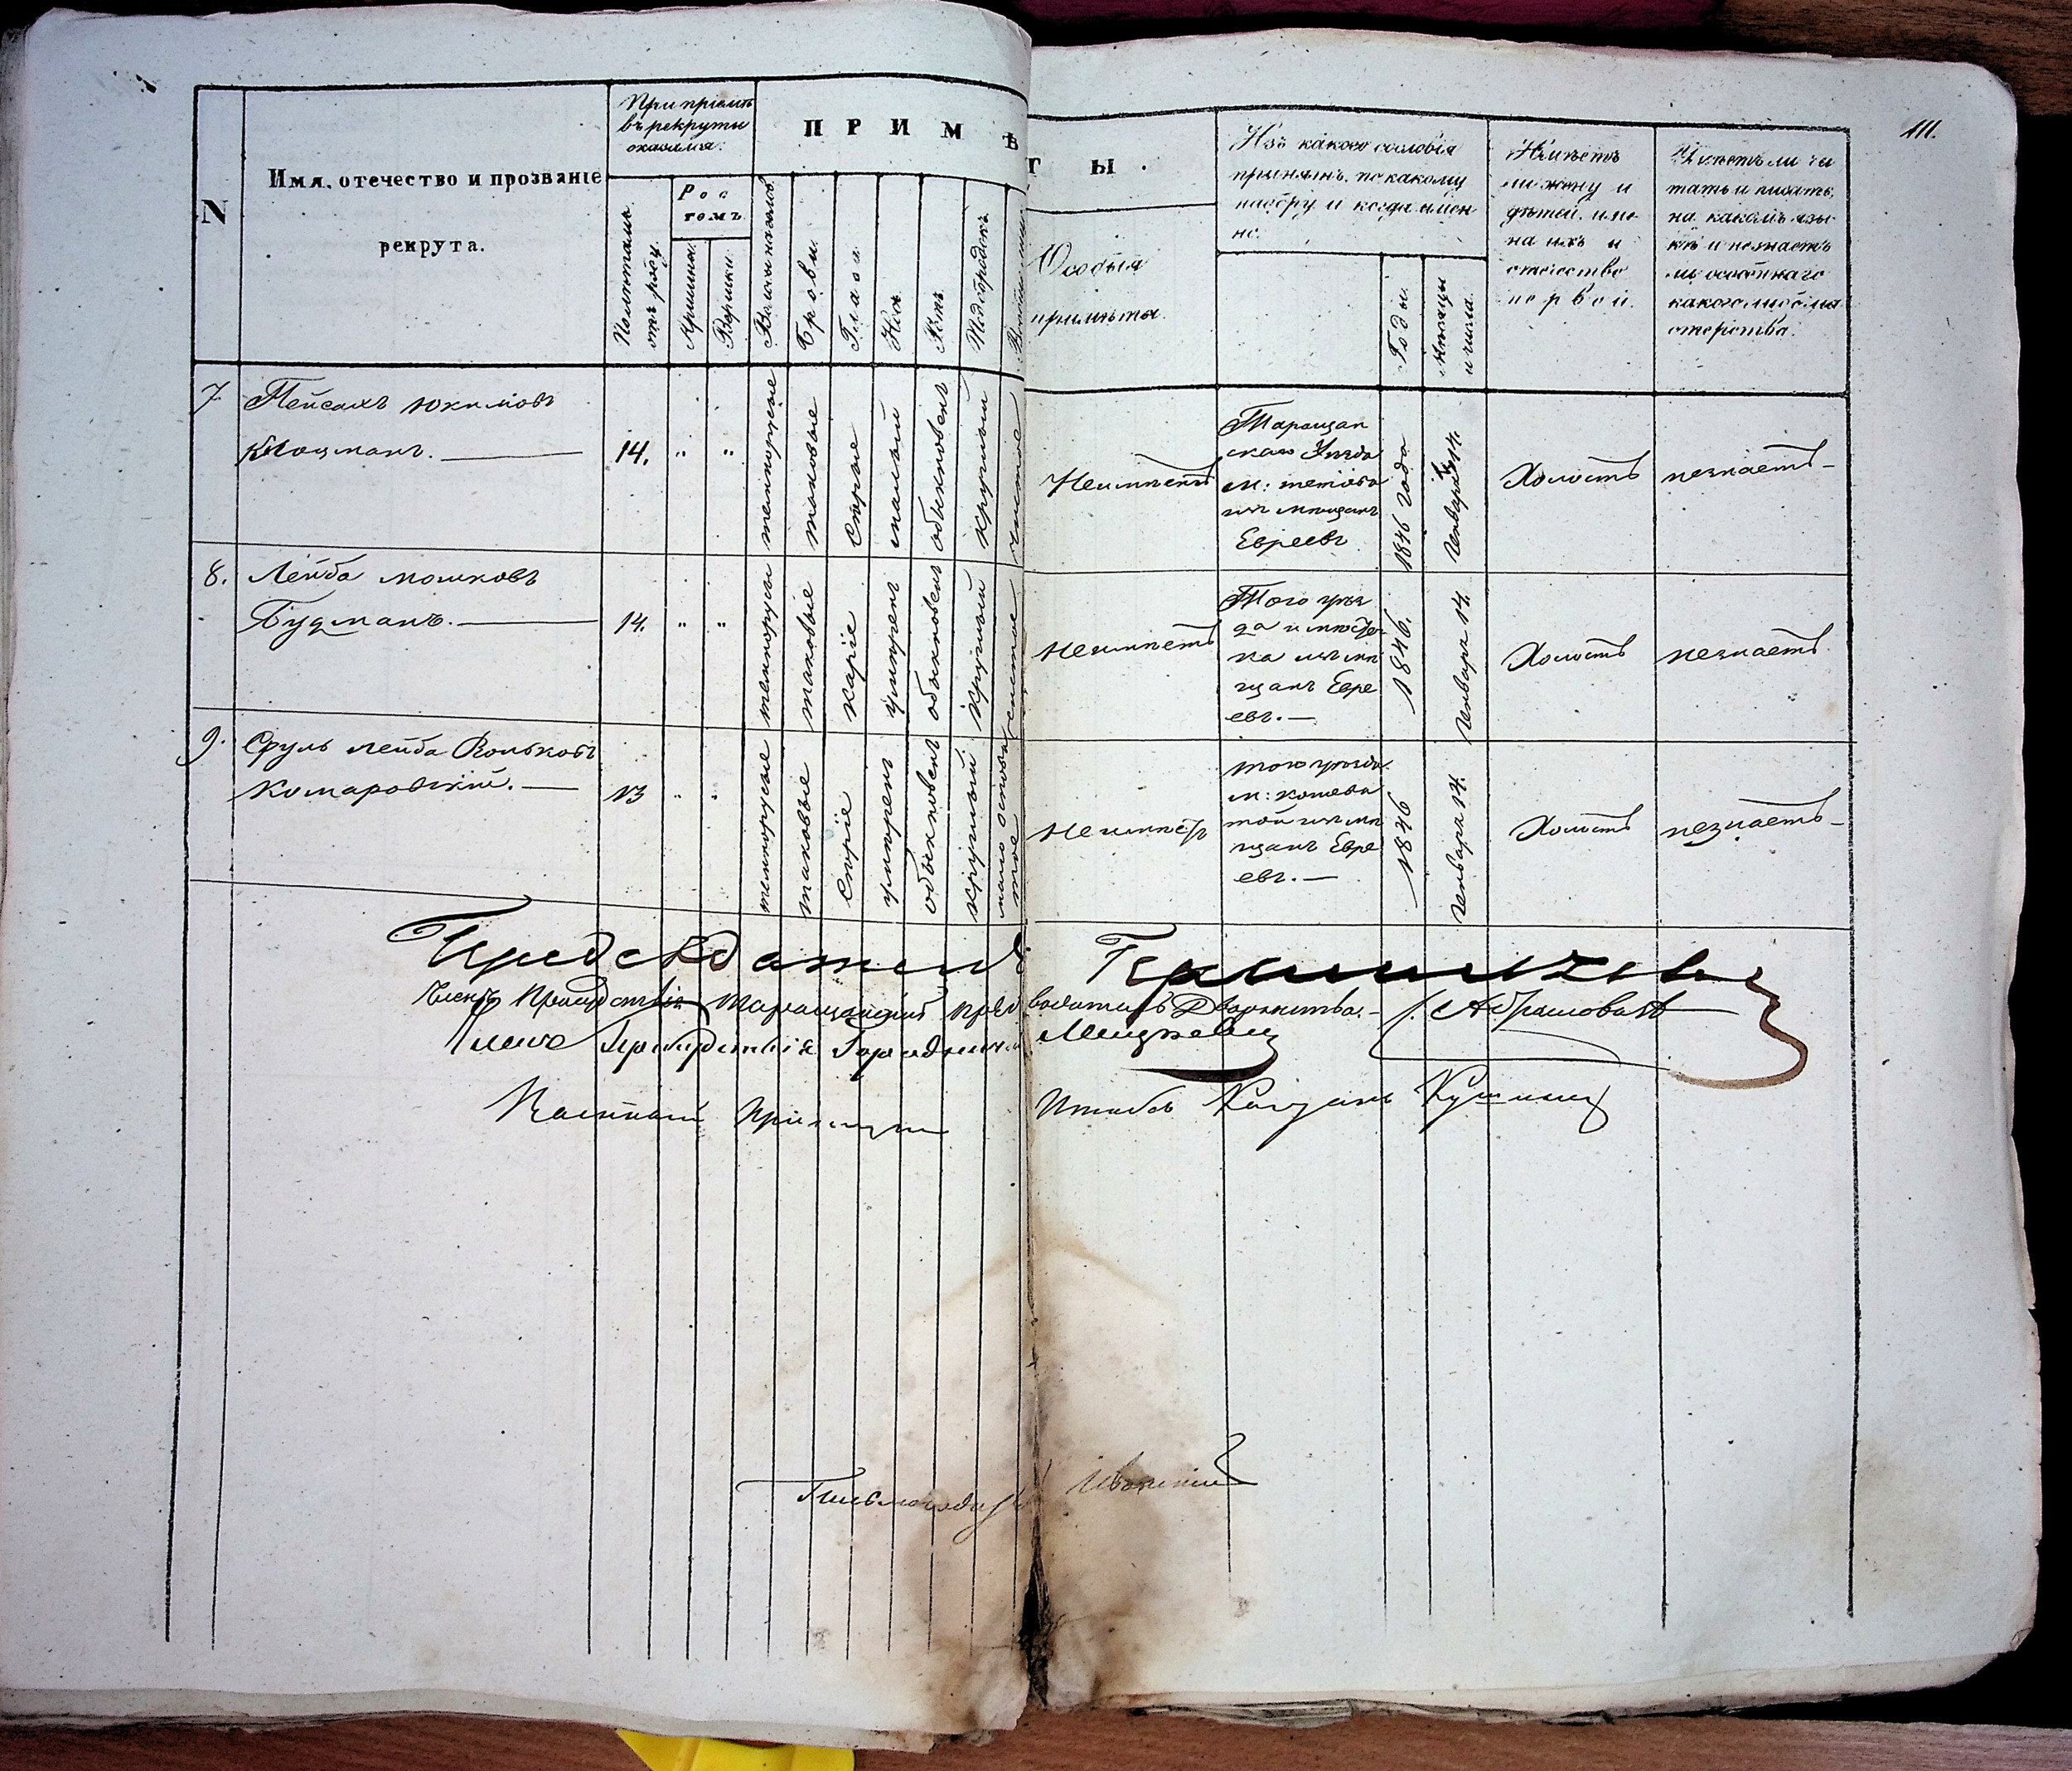 111.
N
Имя, отечество и прозваніе
рекрута.
При пріемѣ
въ рекруты
оказался:
Полѣтамъ
отъ роду.
Рос
томъ
Аршины.
Вершки.
ПРИМѢ
ТЫ.
Брови.
Глаза
Носъ
Ротъ
Подбородокъ
Особыя
примѣты.
Изъ какого сословія
принятъ, по какому
набору и когда имен
но.
Годы.
Мѣсяцы
и числа.
Имѣетъ
ли жену и
дѣтей, име
на ихъ и
отчество
первой.
Умѣетъ ли чи
тать и писать,
на какомъ язы
кѣ и незнаетъ
ли особеннаго
какого либо ма
стерства.
7.
Пейсахъ Юкимовъ
Клоцманъ.
14.
" "
темнорусые
таковые
Сѣрые
малый
обыкновенъ
круглый
чистое
Неимѣетъ
Таращан
скаго Уѣзда
м: тетіева
изъ мѣщанъ
Евреевъ
1846 года
Генваря 14.
Холостъ
незнаетъ
8.
Лейба Мошковъ
Будманъ.
14.
" "
темнорусы
таковые
каріе
умѣренъ
обыкновенъ
круглый
чистое
Неимѣетъ
Того уѣз
да и мѣстеч
ка изъ мѣ
щанъ Евре
евъ.
1846.
Генваря 14.
Холостъ
незнаетъ
9.
Сруль Лейба Вольковъ
Комаровскій.
13
" "
темнорусые
таковые
Сѣріе
умѣренъ
обыкновенъ
круглый
мало основа
тое
Неимѣетъ
того уѣзда
м: кошева
той изъ мѣ
щанъ Евре
евъ.
1846
Генваря 14.
Холостъ
незнаетъ
Председатель
Членъ Присудствія Таращанскій Предводитель Дворянства
Членъ Присудствія Городничій
Военный Пріемщикъ Штабсъ Капитанъ
Письмоводитель